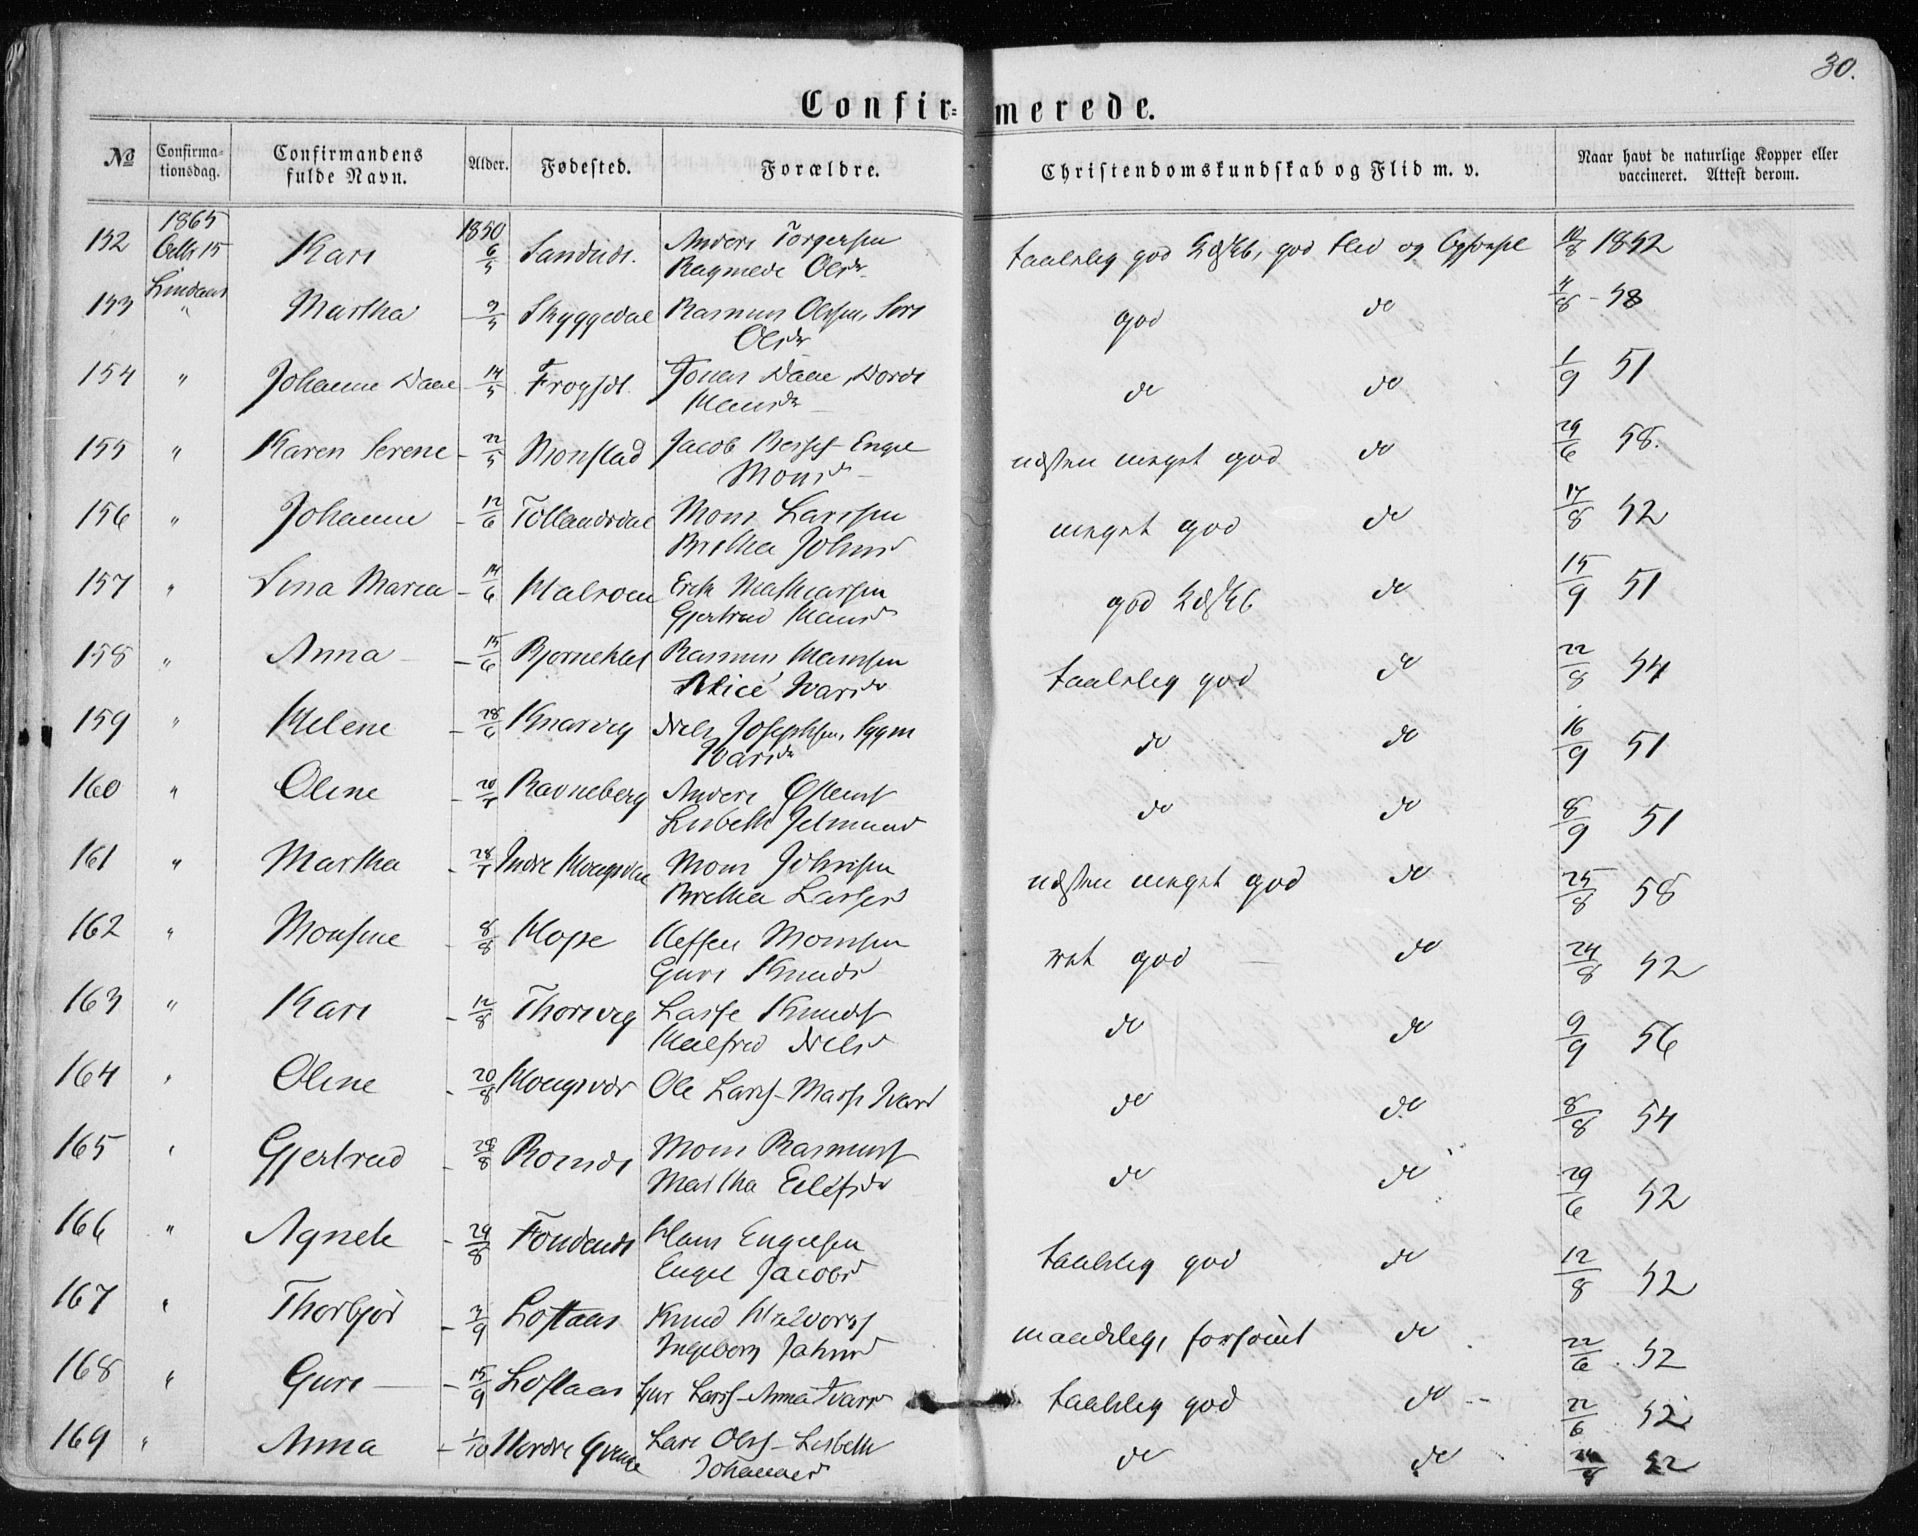 30.
Confir= merede.
No Confirma= tionsdag. Confirmandens fulde Navn. Alder. Fødested. Forældre. Christendomskundskab og Flid m. v. Naar havt de naturlige Kopper eller vaccineret. Attest derom.
1865 1850
152 Octbr 15 Kari 6/5 Sandnds. Anders Torgersen taalelig god Kdskb, god Flid og Opførsel 10/8 1852
Lindaas Ragnede Olsdr
153 " Martha 9/5 Skyggedal Rasmus Olsen, Siri god do 4/8 - 58
Olsdr
154 " Johanne Daae 14/5 Jonas Daae, Dorde do do 1/9 51
Hansdr
155 " Karen Serene - 22/5 Monstad Jacob Engel næsten meget god do 29/6 58.
Monsd
156 " Johanne - 12/6 Mons Larssen meget god do 17/8 52
Brethe Johnsd
157 " Sina Maria - 14/6 Erik Mathiassen god Kdskb do 15/9 51
Gjertrud Hansd
158 " Anna - 15/6 Rasmus Hansen taalelig god do 22/8 54
Alice Ivarsdr
159 " Helene - 28/6 Knarvig Niels Josephsen, do do 16/9 51
Ivarsdr
160 " Oline - 20/7 Ravneberg Anders do do 8/9 51
Lisbeth
161 " Martha - 28/7 Indre Mons Johnsen næsten meget god do 25/8 58
Brethe Larsd
162 " Monsine - 8/8 Hope Steffen Monsen ret god do 24/8 52
Guri Knudsd
163 " Kari - 12/8 Thorsvig Lasse Knuds do do 9/9 56
Malfred Nielsd
164 " Oline - 20/8 Ole Larss - Ivarsd do do 8/8 54
165 " Gjertrud - 28/8 Mons Rasmuss do do 29/6 52
Martha Eilefsdr
166 " Agnete - 29/8 Hans Engelsen taalelig god do 12/8 52
Engel Jacobsd
167 " Thorbjør - 3/9 Loftaas Knud Halvors maadelig, forsømt do 22/6 52
Ingeborg Johnsd
168 " Guri - 15/9 Loftaas Larss - Anna Ivarsd taalelig god do 22/6 52
169 " Anna - 1/10 Nordre Lars Olss - Lisbeth do do 52
Johannesd